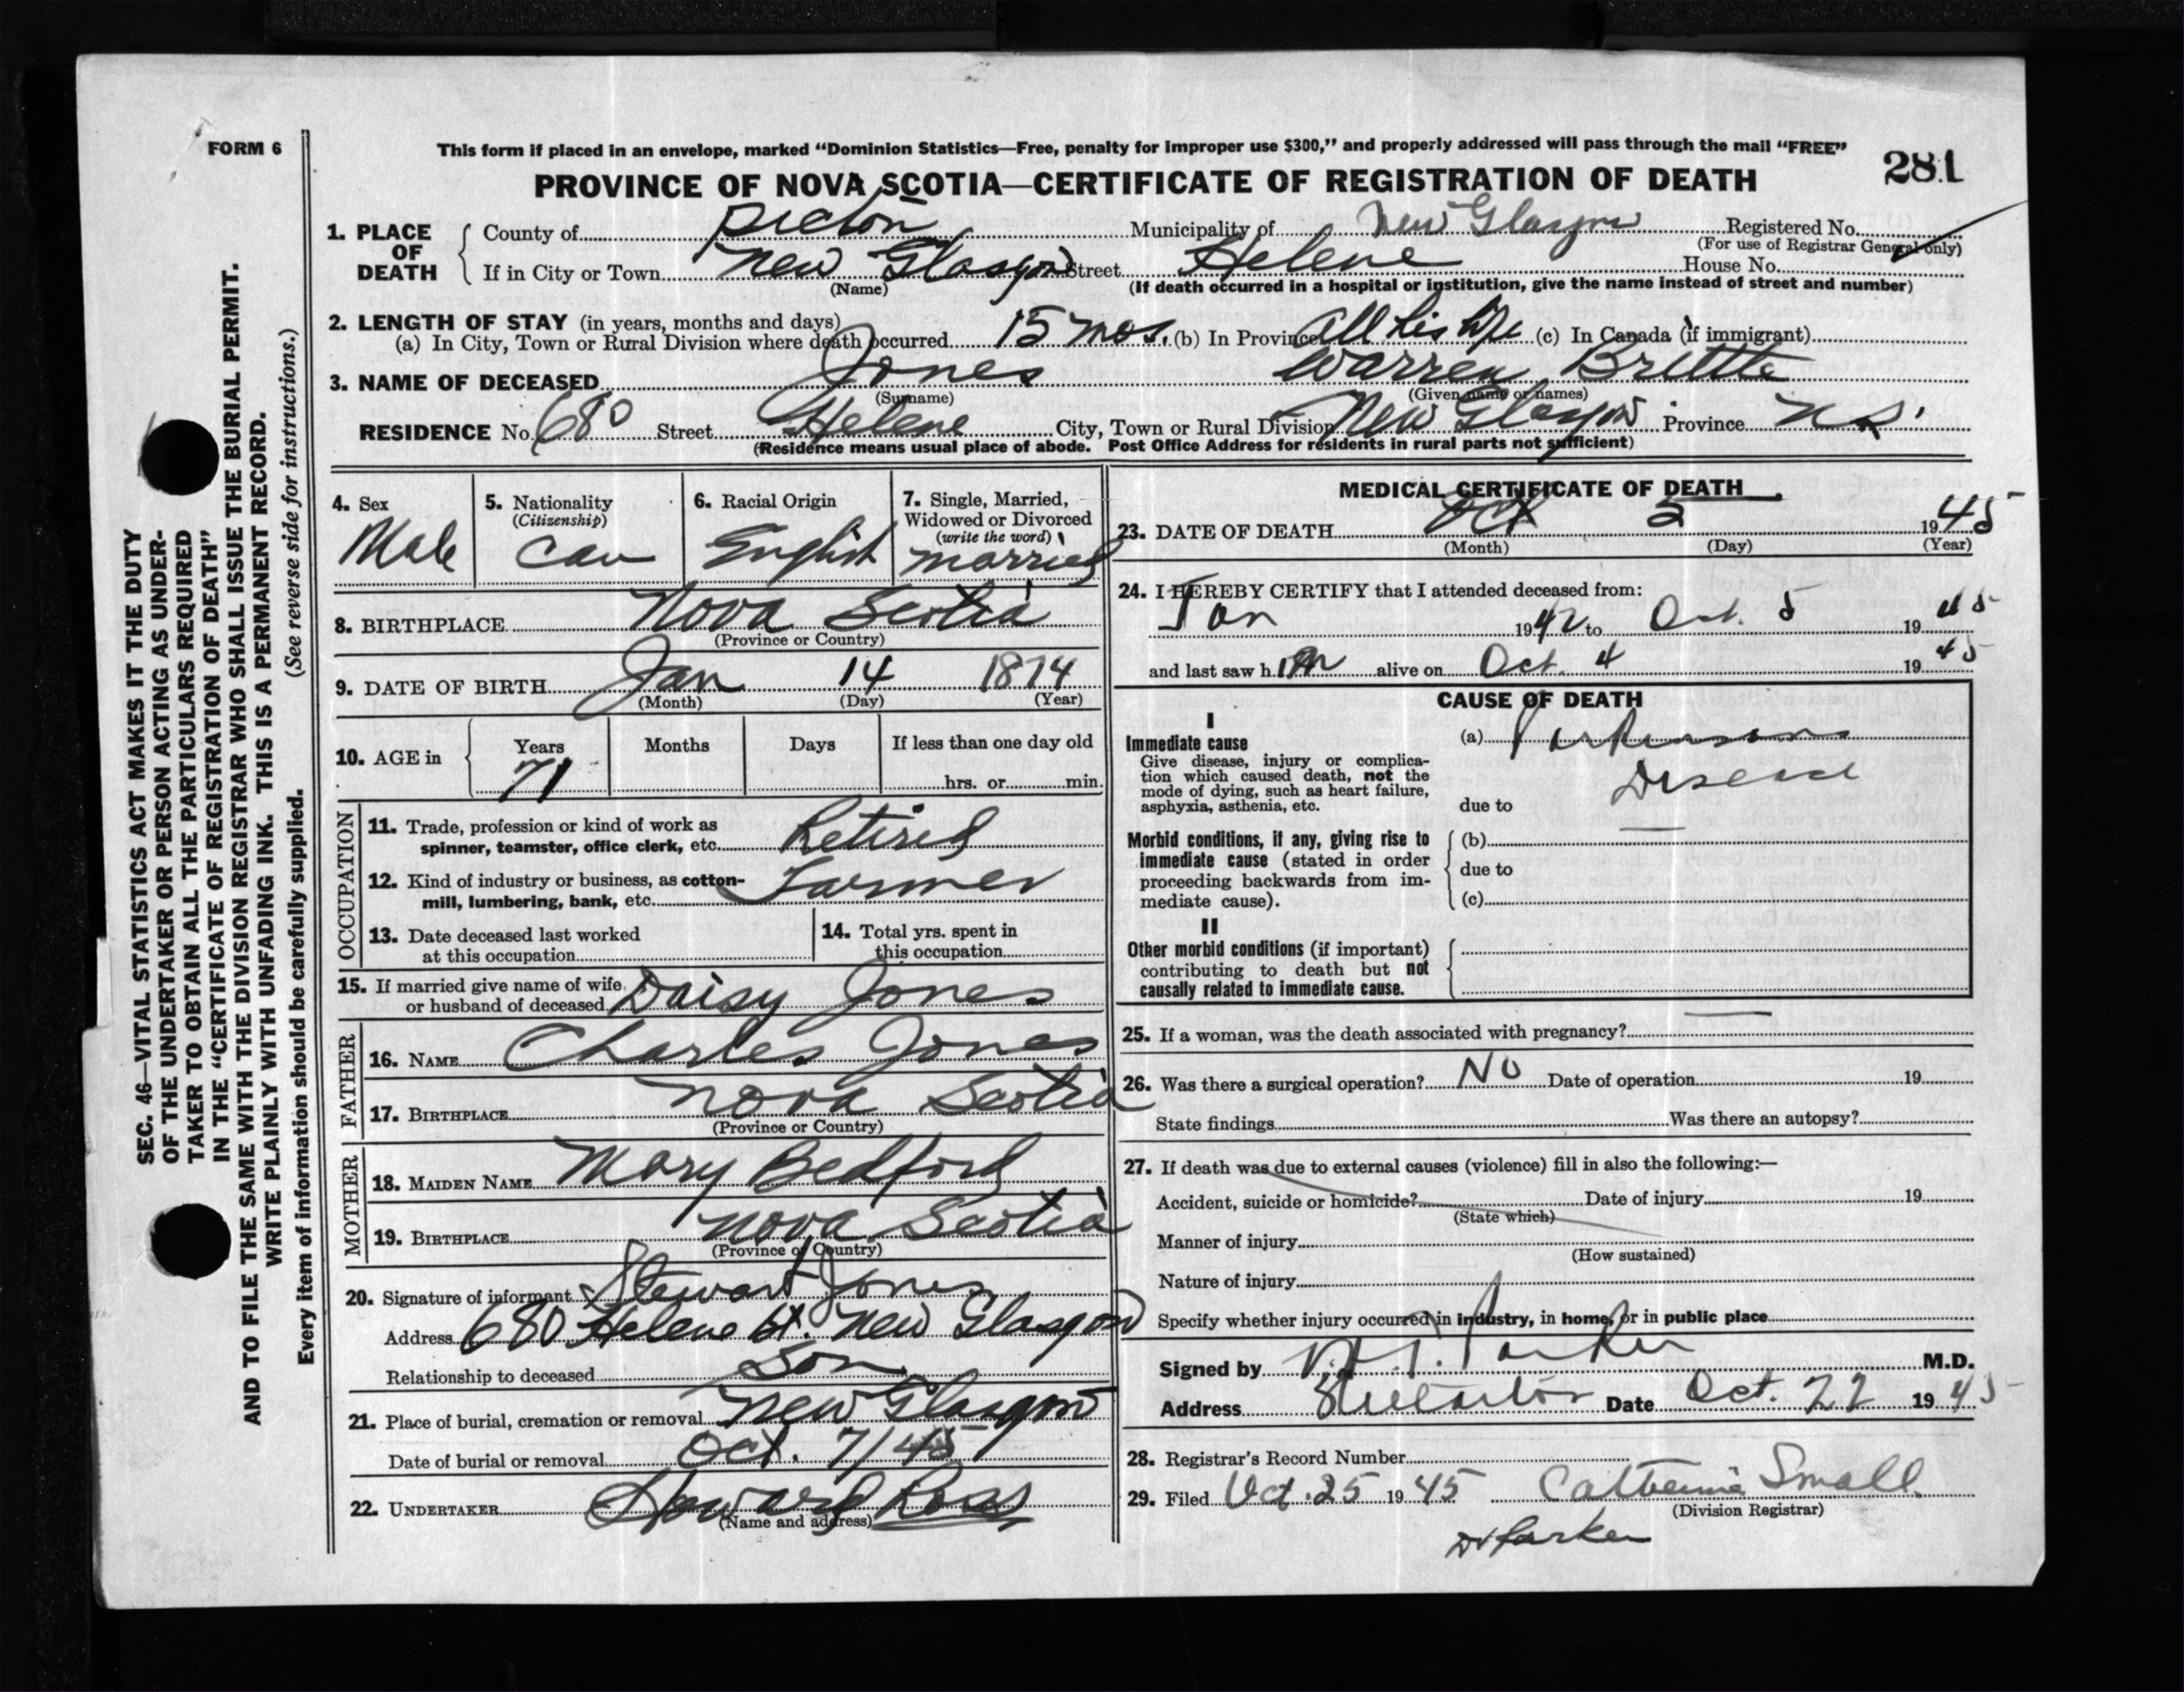 FORM 6
This form if placed in an envelope, marked “Dominion Statistics—Free, penalty for improper use $300,” and properly addressed will pass through the mail “FREE”
281
PROVINCE OF NOVA SCOTIA—CERTIFICATE OF REGISTRATION OF DEATH
1. PLACE OF DEATH
County of Pictou Municipality of New Glasgow Registered No.
(For use of Registrar General only)
If in City or Town New Glasgow Street Helene House No.
(Name) (If death occurred in a hospital or institution, give the name instead of street and number)
2. LENGTH OF STAY (in years, months and days)
(a) In City, Town or Rural Division where death occurred 15 mos. (b) In Province All his life (c) In Canada (if immigrant)
3. NAME OF DECEASED Jones Warren
(Surname) (Given name or names)
RESIDENCE No. 680 Street Helene City, Town or Rural Division New Glasgow Province N.S.
(Residence means usual place of abode. Post Office Address for residents in rural parts not sufficient)
4. Sex
Male
5. Nationality
(Citizenship)
Can
6. Racial Origin
English
7. Single, Married,
Widowed or Divorced
(write the word)
married
8. BIRTHPLACE Nova Scotia
(Province or Country)
9. DATE OF BIRTH Jan 14 1874
(Month) (Day) (Year)
10. AGE in Years Months Days If less than one day old
71 hrs. or min.
OCCUPATION
11. Trade, profession or kind of work as
spinner, teamster, office clerk, etc. Retired
12. Kind of industry or business, as cotton-
mill, lumbering, bank, etc. Farmer
13. Date deceased last worked
at this occupation
14. Total yrs. spent in
this occupation
15. If married give name of wife
or husband of deceased Daisy Jones
FATHER
16. NAME Charles Jones
17. BIRTHPLACE Nova Scotia
(Province or Country)
MOTHER
18. MAIDEN NAME Mary Bedford
19. BIRTHPLACE Nova Scotia
(Province or Country)
20. Signature of informant Stewart Jones
Address 680 Helene St. New Glasgow
Relationship to deceased Son
21. Place of burial, cremation or removal New Glasgow
Date of burial or removal Oct. 7/45
22. UNDERTAKER Howard Ross
(Name and address)
MEDICAL CERTIFICATE OF DEATH
23. DATE OF DEATH Oct 5 1945
(Month) (Day) (Year)
24. I HEREBY CERTIFY that I attended deceased from:
Jan 1942 to Oct. 5 1945
and last saw him alive on Oct. 4 1945
CAUSE OF DEATH
I
Immediate cause
Give disease, injury or complica-
tion which caused death, not the
mode of dying, such as heart failure,
asphyxia, asthenia, etc.
(a) Parkinsons
Disease
due to
Morbid conditions, if any, giving rise to
immediate cause (stated in order
proceeding backwards from im-
mediate cause).
(b)
due to
(c)
II
Other morbid conditions (if important)
contributing to death but not
causally related to immediate cause.
25. If a woman, was the death associated with pregnancy?
26. Was there a surgical operation? No Date of operation 19
State findings Was there an autopsy?
27. If death was due to external causes (violence) fill in also the following:—
Accident, suicide or homicide? Date of injury 19
(State which)
Manner of injury
(How sustained)
Nature of injury
Specify whether injury occurred in industry, in home, or in public place
Signed by Parker M.D.
Address Stellarton Date Oct. 22 1945
28. Registrar's Record Number
29. Filed Oct. 25 1945 Catherine Small
(Division Registrar)
Dr Parker
SEC. 46—VITAL STATISTICS ACT MAKES IT THE DUTY
OF THE UNDERTAKER OR PERSON ACTING AS UNDER-
TAKER TO OBTAIN ALL THE PARTICULARS REQUIRED
IN THE “CERTIFICATE OF REGISTRATION OF DEATH”
AND TO FILE THE SAME WITH THE DIVISION REGISTRAR WHO SHALL ISSUE THE BURIAL PERMIT.
WRITE PLAINLY WITH UNFADING INK. THIS IS A PERMANENT RECORD.
Every item of information should be carefully supplied. (See reverse side for instructions.)